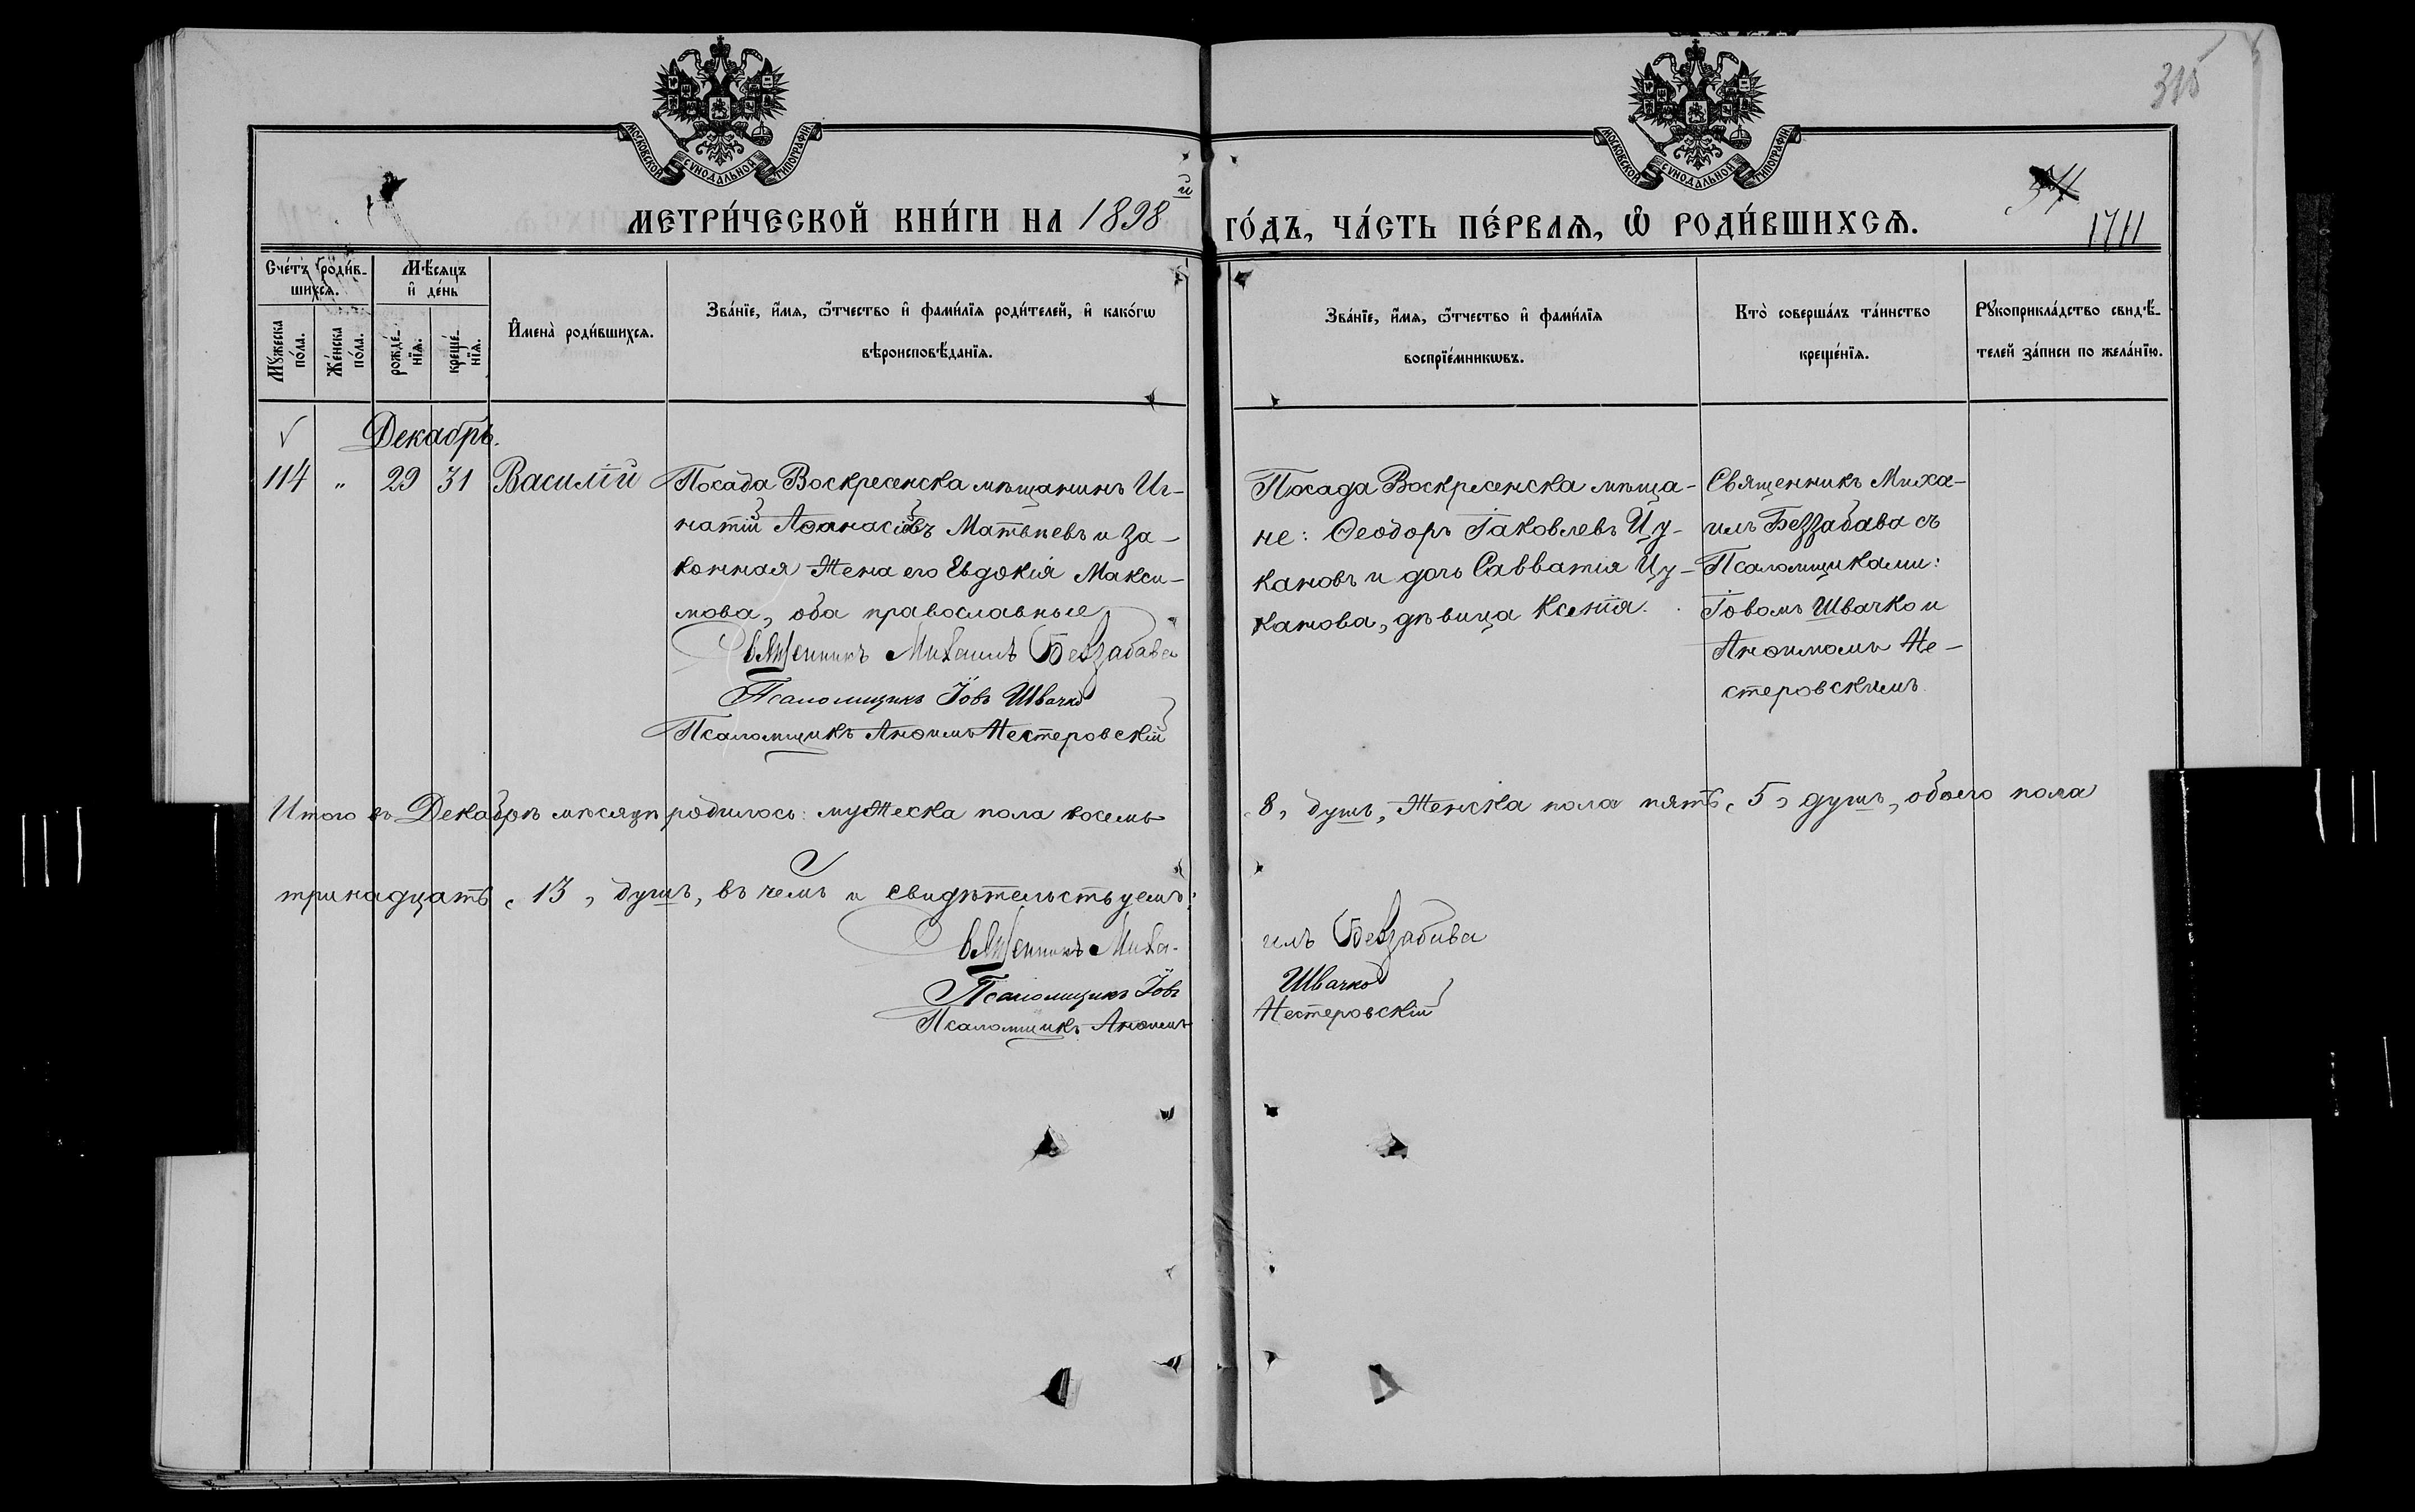 315
МОСКОВСКОЙ СѴНОДАЛЬНОЙ ТИПОГРАФІИ
МОСКОВСКОЙ СѴНОДАЛЬНОЙ ТИПОГРАФІИ
МЕТРИ́ЧЕСКОЙ КНИ́ГИ НА 1898й ГО́ДЪ, ЧА́СТЬ ПЕ́РВАѦ, Ѡ҆ РОДИ́ВШИХСѦ.
1711
Сче́тъ роди́в-
шихсѧ.
Мѣ́сѧцъ
и҆ де́нь
Мꙋ́жеска
по́ла.
Же́нска
по́ла.
рожде́-
нїѧ.
креще́-
нїѧ.
И҆мена̀ роди́вшихсѧ.
Зва́нїе, и҆́мѧ, ѻ҆́тчество и҆ фами́лїѧ роди́телей, и҆ како́гѡ
вѣроисповѣ́данїѧ.
Зва́нїе, и҆́мѧ, ѻ҆́тчество и҆ фами́лїѧ
воспрїе́мникѡвъ.
Кто̀ соверша́лъ та́инство
креще́нїѧ.
Рꙋкоприкла́дство свидѣ́-
телей за́писи по жела́нїю.
Декабрь.
114 „ 29 31 Василій
Посада Воскресенска мѣщанинъ Иг-
натій Аѳанасіевъ Матвѣевъ и за-
конная жена его Евдокія Макси-
мова, оба православные
Священникъ Михаилъ Беззабава
Псаломщикъ Іовъ Швачко
Псаломщикъ Анѳимъ Нестеровскій
Посада Воскресенска мѣща-
не: Ѳеодоръ Іаковлевъ Цу-
кановъ и дочь Савватія Цу-
канова, дѣвица Ксенія.
Священникъ Миха-
илъ Беззабава съ
Псаломщиками:
Іовомъ Швачко и
Анѳимомъ Не-
стеровскимъ.
Итого въ Декабрѣ мѣсяцѣ родилось: мужеска пола восемь „8„ душъ, женска пола пять „5„ душъ, обоего пола
тринадцать „13„ душъ, въ чемъ и свидѣтельствуемъ:
Священникъ Миха-илъ Беззабава
Псаломщикъ Іовъ Швачко
Псаломщикъ Анѳимъ Нестеровскій